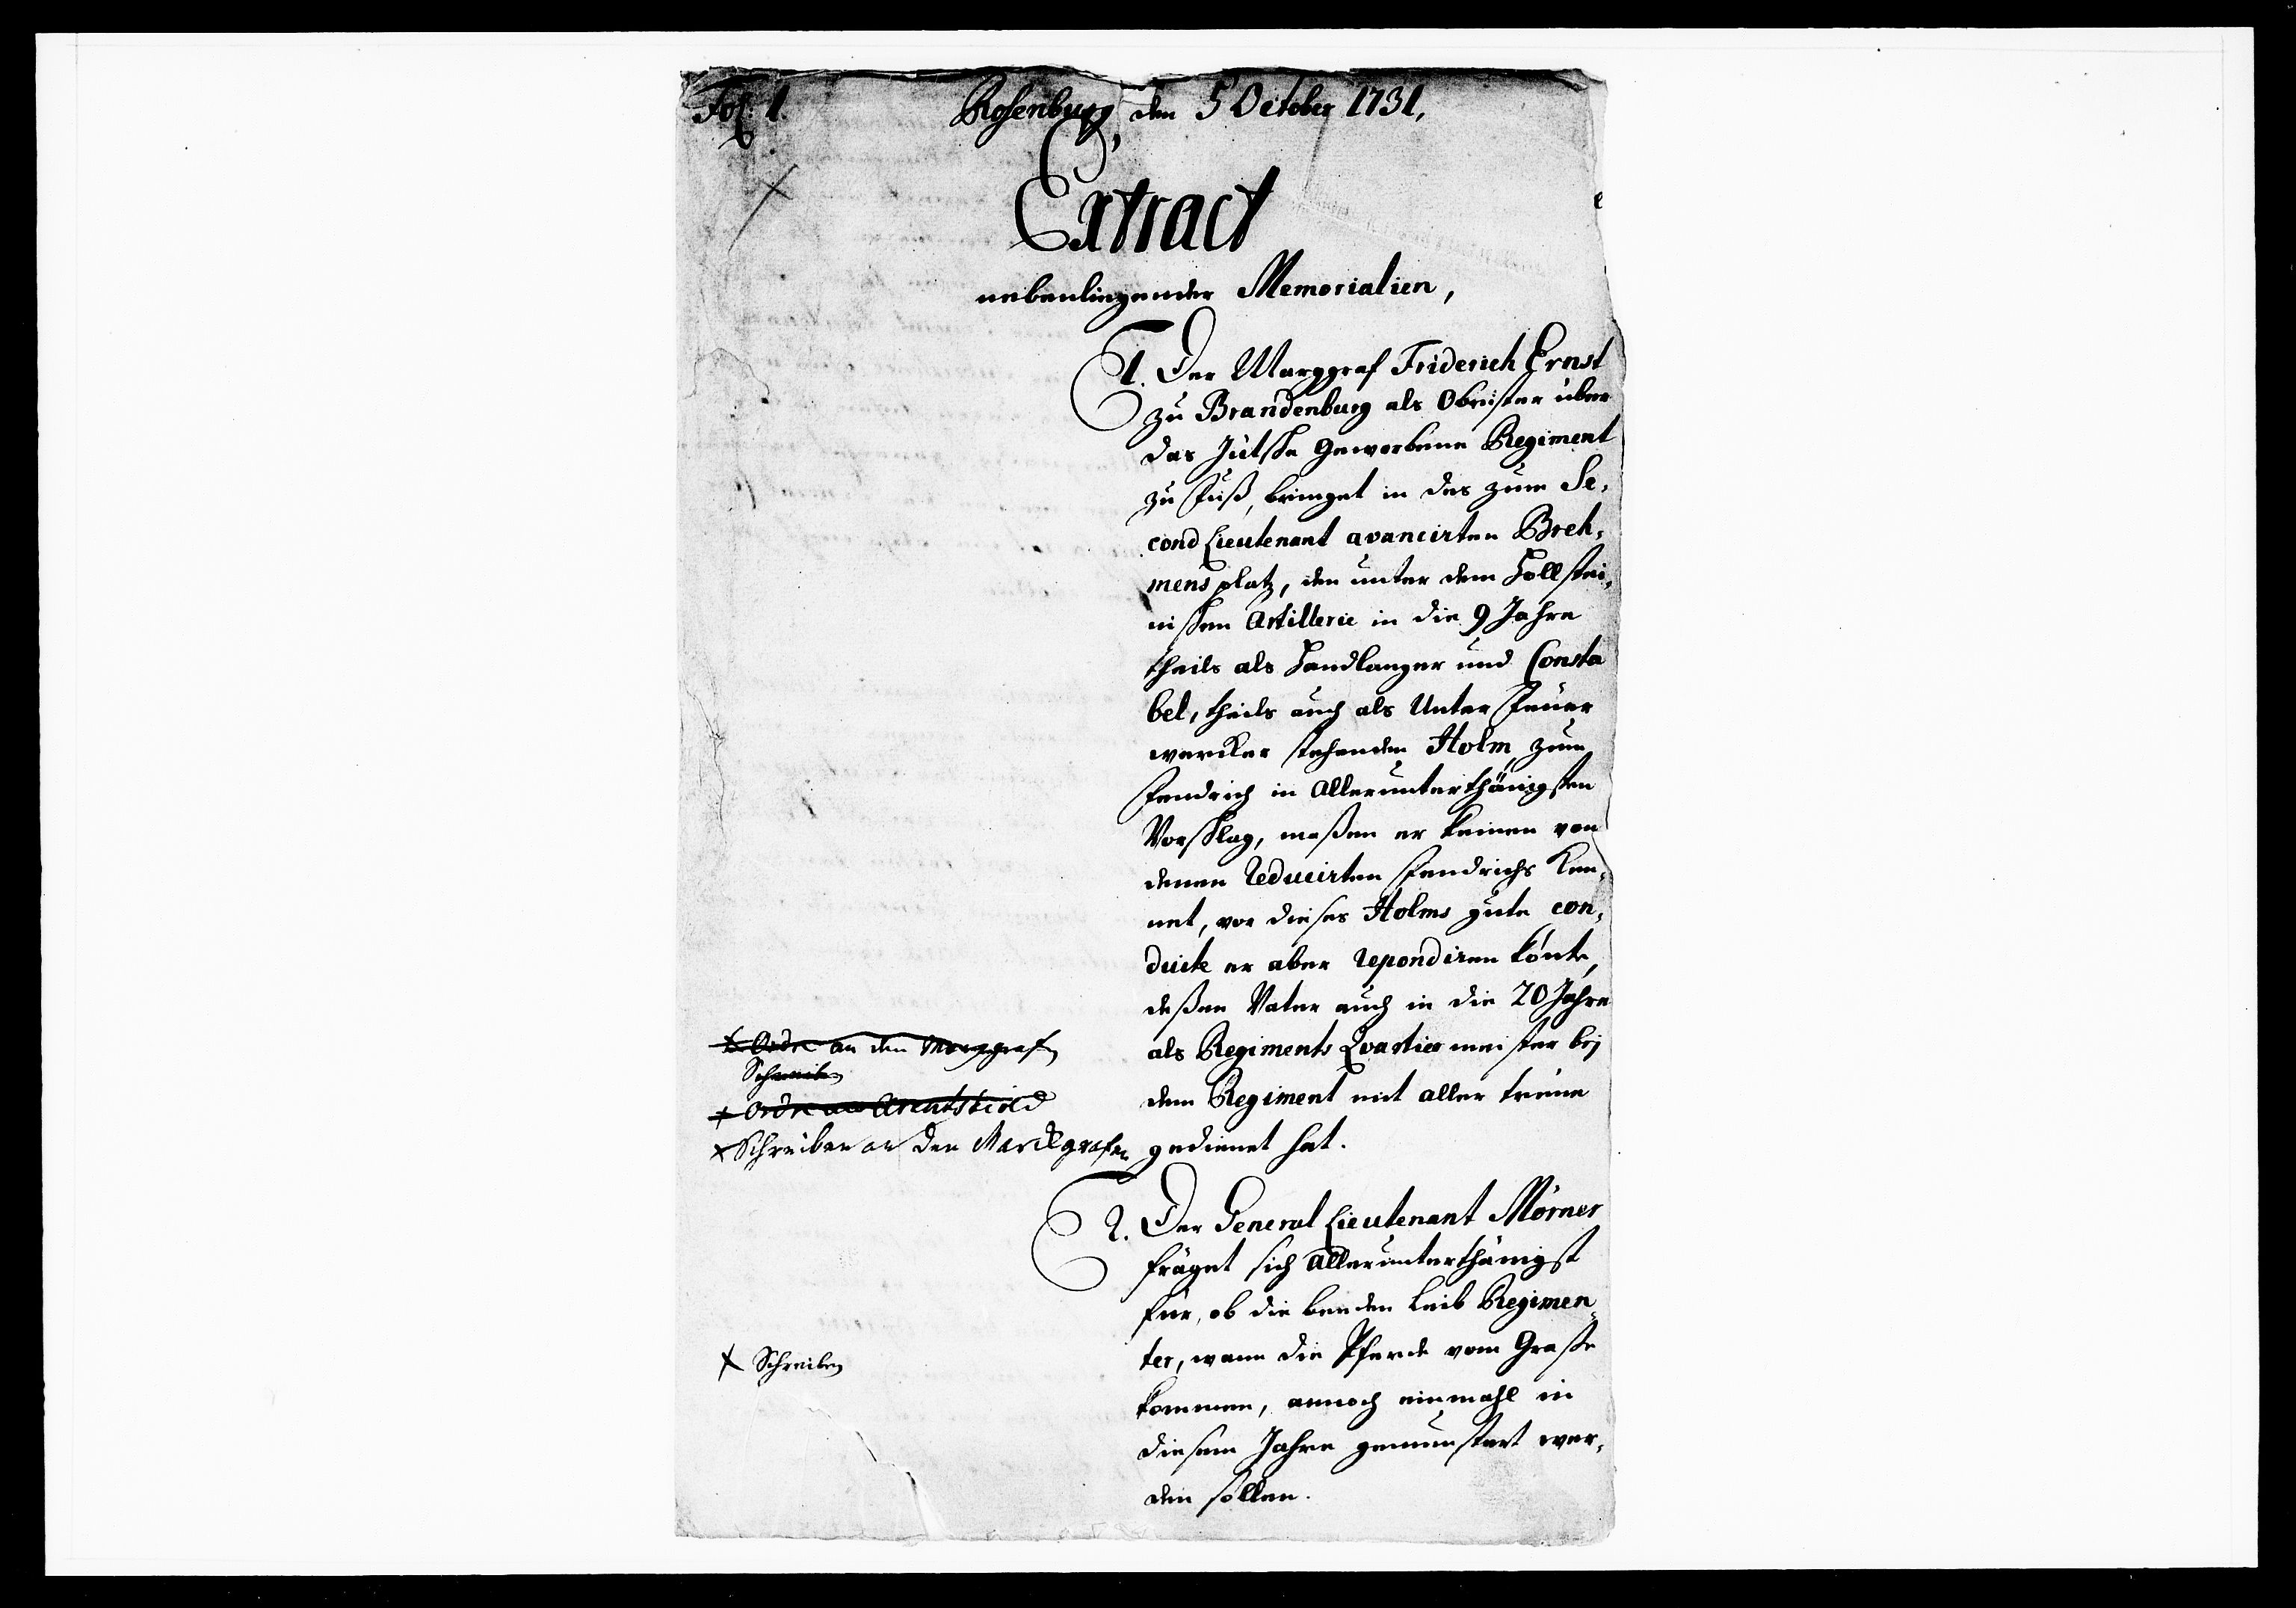 Fol. 1.
Rosenburg, den 5 October 1731,
Extract
nebenliegender Memorialien,
1. Der Marggraf Friderich Ernst
zu Brandenburg als Obrister über
das Jütsche Geworbene Regiment
zu Fuß, bringet in des zum Se,
cond Lieutenant avancirten Breh,
mens platz, den unter dem Hollstei,
nischen Artillerie in die 9 Jahre
theils als Handlanger und Consta
bel, theils auch als Unter Feuer
wercker stehenden Holm, zum
Fendrich in Allerunterthänigsten
Vorschlag, maßen er keinen von
denen Reducirten Fendrichs Ken,
net, vor dieses Holms gute con,
duite er aber repondiren könte,
deßen Vater auch in die 20 Jahre
als Regiments Qvartiermeister bej
dem Regiment mit aller treue
gedienet hat.
x Ordre an den Marggrafen
Schreiben
x Ordre an Arentskiold
x Schreiben an den Marckgrafen
2. Der General Lieutenant Mörner
fräget sich Allerunterthänigst
für, ob die beeden Leib Regimen,
ter, wann die Pferde vom Graße
kommen, annoch einmahl in
diesem Jahre gemunstert wer,
den sollen.
x Schreiben